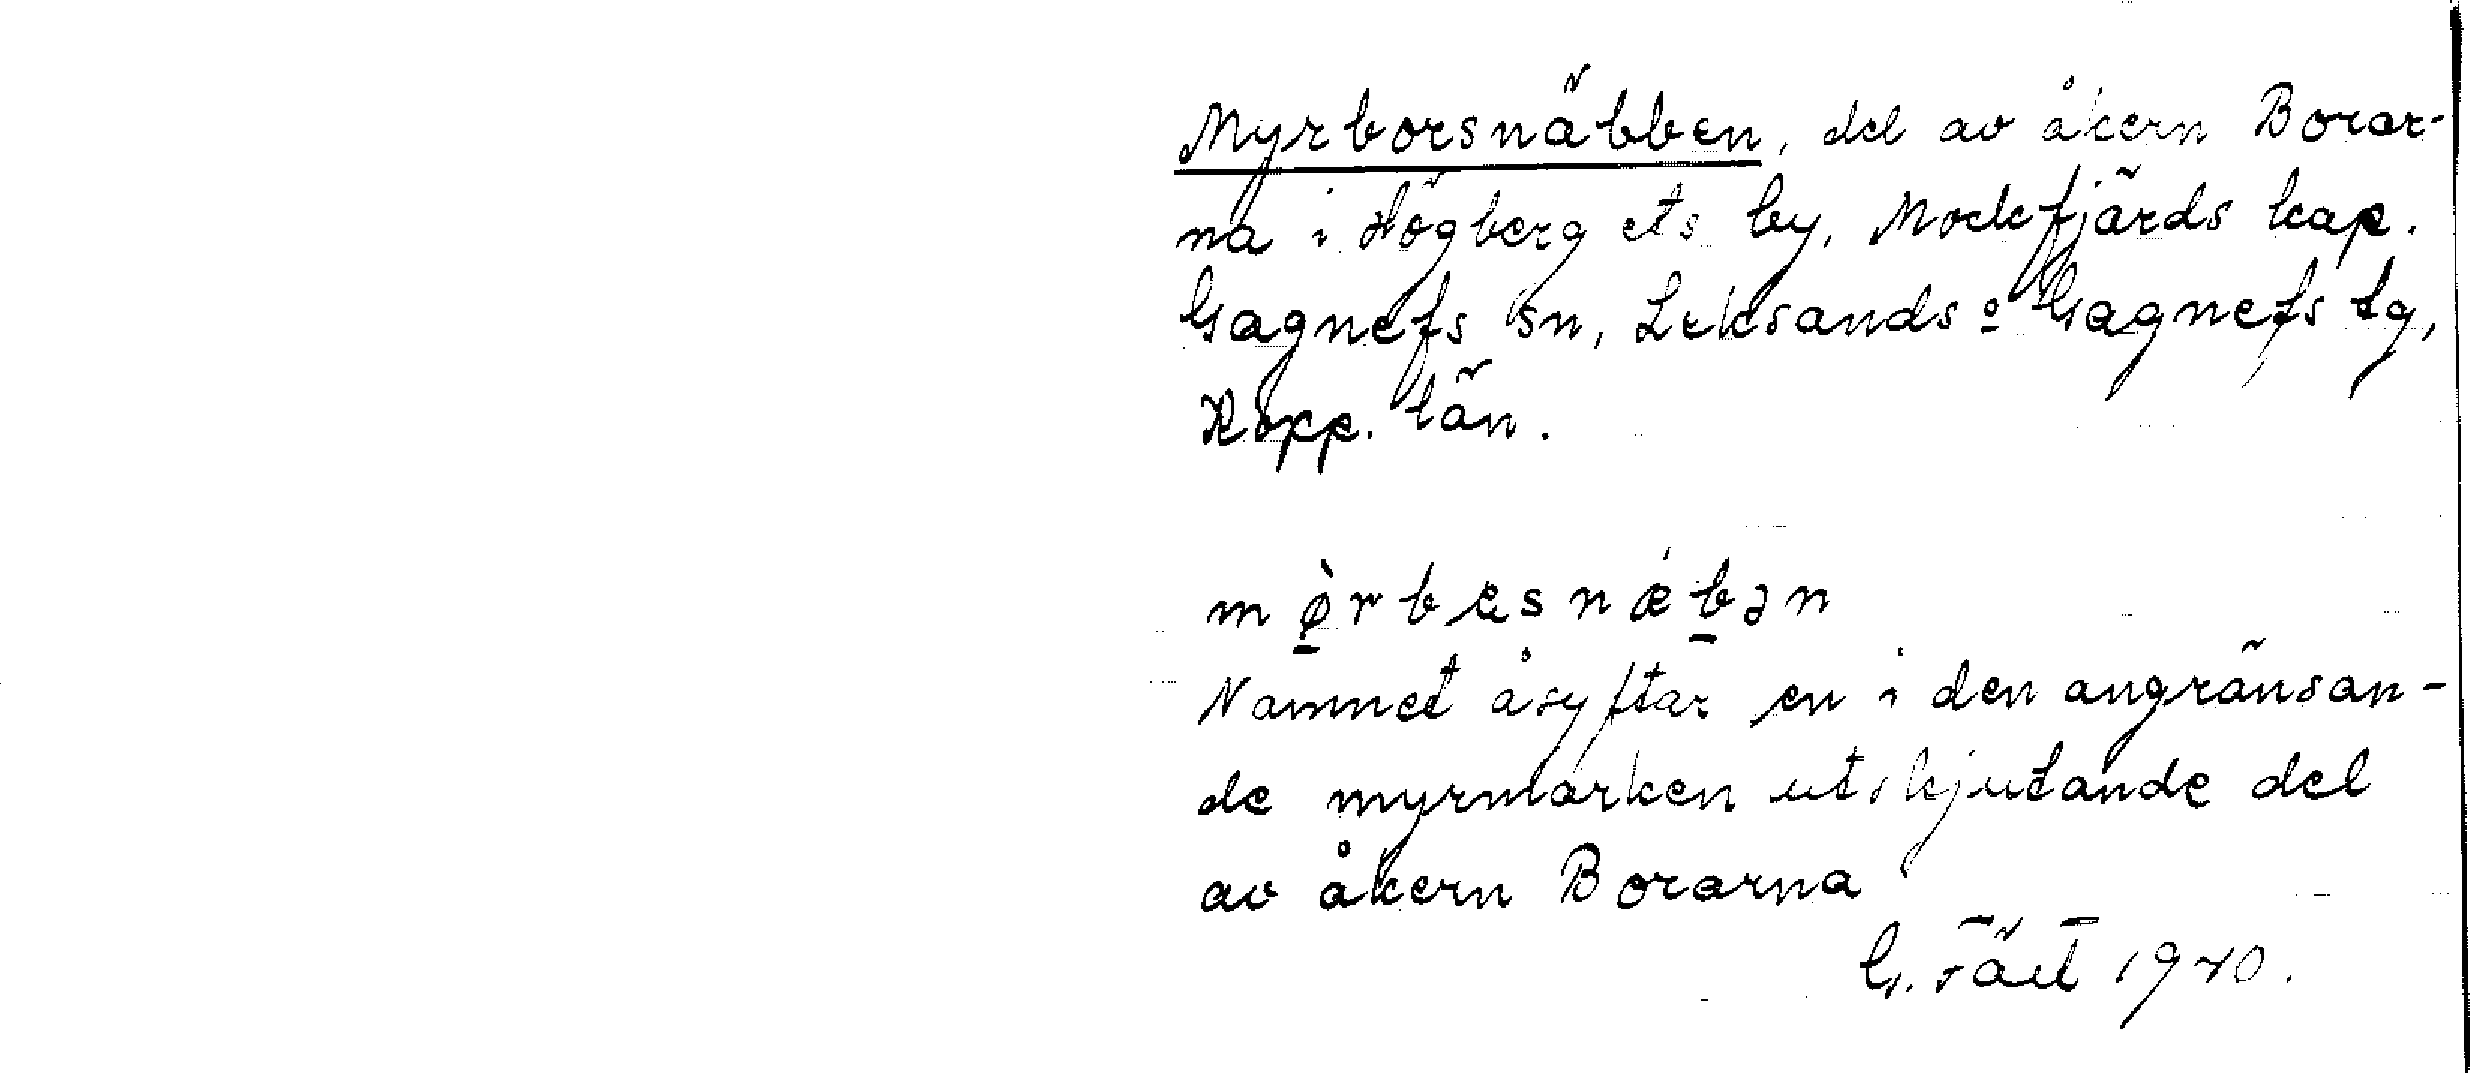 Myrborsnäbben, del av åkern Borar-
na i Högbergets by, Mockfjärds kap.
Gagnefs sn, Leksands o Gagnefs tg,
Kopp. län.
mø̀rbæsnǽbən
Namnet åsyftar en i den angränsan-
de myrmarken utskjutande del
av åkern Borarna
G. 1940.